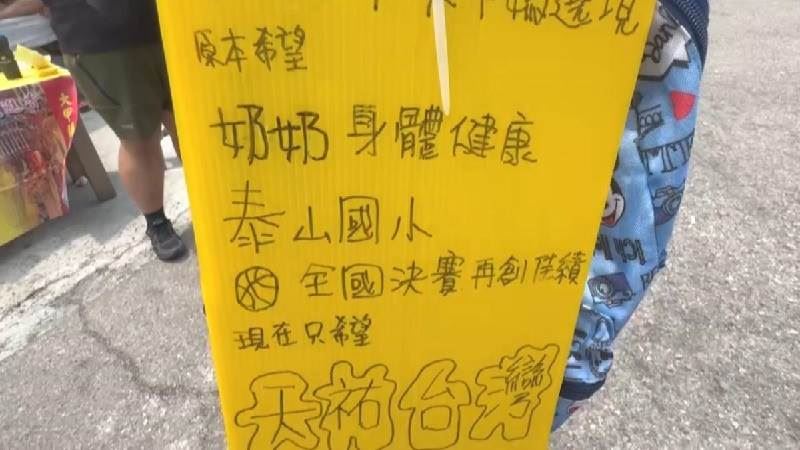 原本希望
奶奶身體健康
泰山國小
全國決賽再創佳績
現在只希望
天祐台灣
大甲